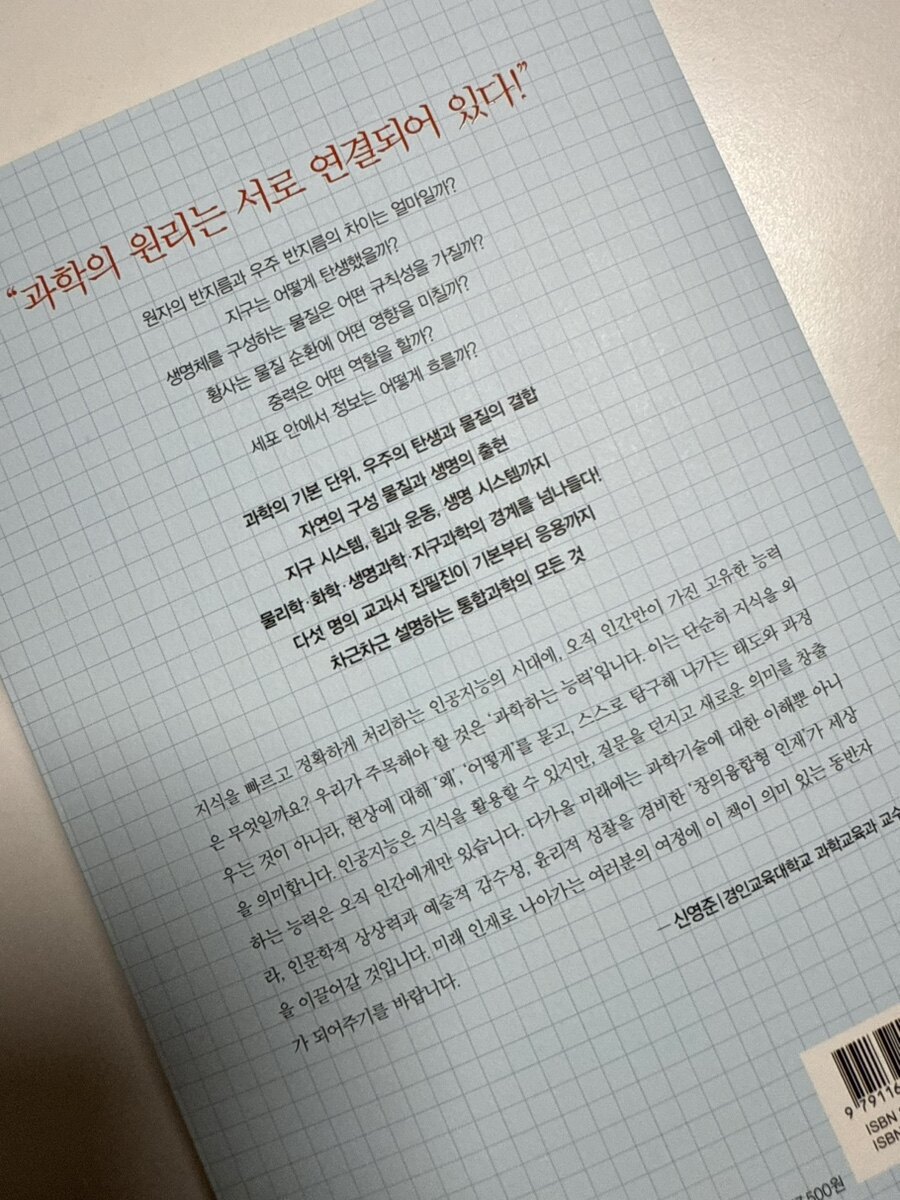 “과학의 원리는 서로 연결되어 있다!”
원자의 반지름과 우주 반지름의 차이는 얼마일까?
지구는 어떻게 탄생했을까?
생명체를 구성하는 물질은 어떤 규칙성을 가질까?
황사는 물질 순환에 어떤 영향을 미칠까?
중력은 어떤 역할을 할까?
세포 안에서 정보는 어떻게 흐를까?
과학의 기본 단위, 우주의 탄생과 물질의 결합
자연의 구성 물질과 생명의 출현
지구 시스템, 힘과 운동, 생명 시스템까지
물리학·화학·생명과학·지구과학의 경계를 넘나들다!
다섯 명의 교과서 집필진이 기본부터 응용까지
차근차근 설명하는 통합과학의 모든 것
지식을 빠르고 정확하게 처리하는 인공지능의 시대에, 오직 인간만이 가진 고유한 능력
은 무엇일까요? 우리가 주목해야 할 것은 ‘과학하는 능력’입니다. 이는 단순히 지식을 외
우는 것이 아니라, 현상에 대해 ‘왜’, ‘어떻게’를 묻고, 스스로 탐구해 나가는 태도와 과정
을 의미합니다. 인공지능은 지식을 활용할 수 있지만, 질문을 던지고 새로운 의미를 창출
하는 능력은 오직 인간에게만 있습니다. 다가올 미래에는 과학기술에 대한 이해뿐 아니
라, 인문학적 상상력과 예술적 감수성, 윤리적 성찰을 겸비한 ‘창의융합형 인재’가 세상
을 이끌어갈 것입니다. 미래 인재로 나아가는 여러분의 여정에 이 책이 의미 있는 동반자
가 되어주기를 바랍니다.
— 신영준 | 경인교육대학교 과학교육과 교수
9 79116
ISBN
ISBN
500원